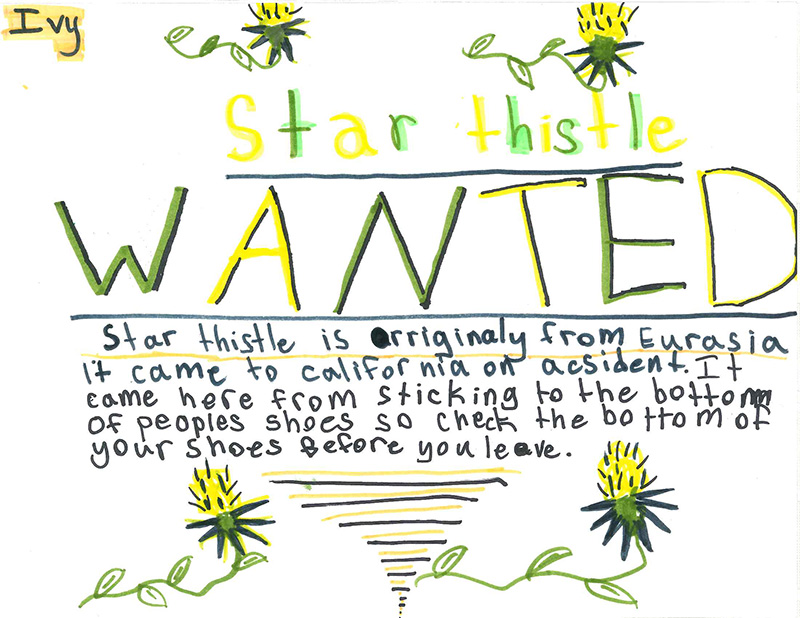 Ivy
Star thistle
WANTED
Star thistle is orriginaly from Eurasia
it came to california on acsident. It
came here from sticking to the bottom
of peoples shoes so check the bottom of
your shoes Before you leave.